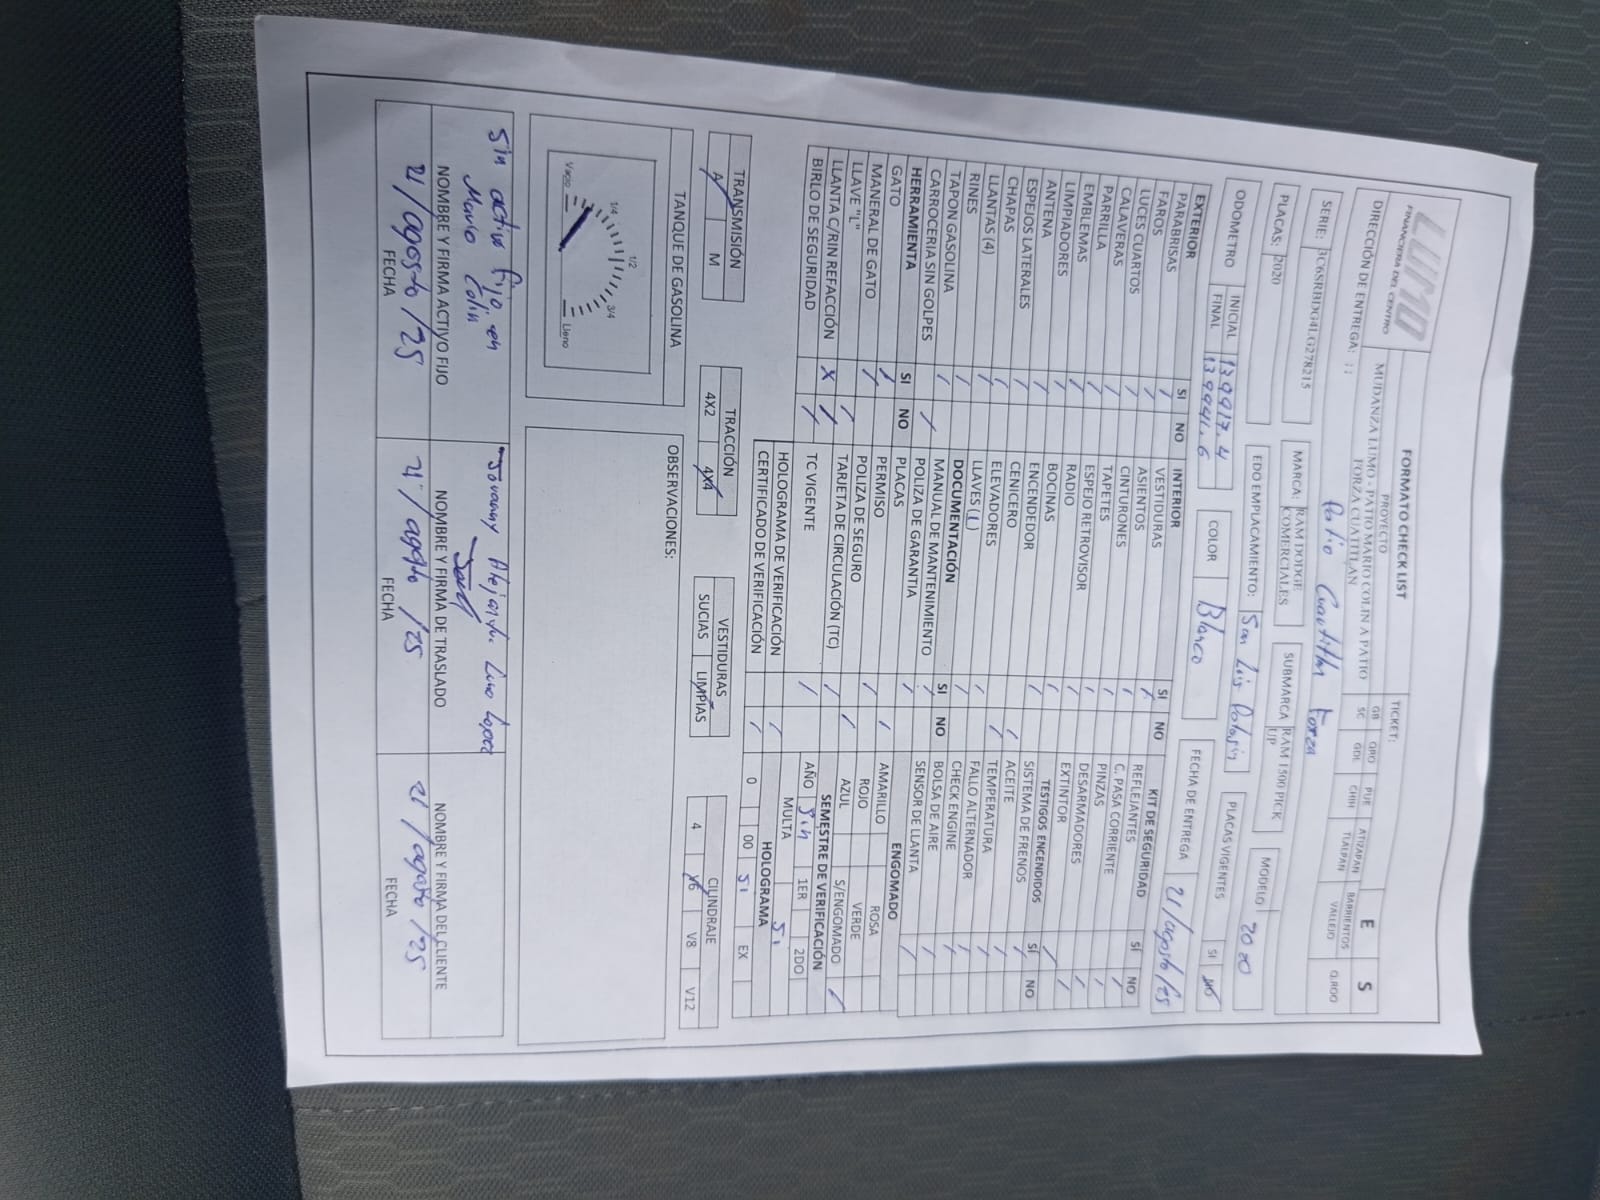 LUMO
FINANCIERA DEL CENTRO
FORMATO CHECK LIST
PROYECTO
MUDANZA LUMO - PATIO MARIO COLIN A PATIO
FORZA CUATITLAN
TICKET:
E S
GB QRO PUE ATIZAPAN BARRIENTOS Q.ROO
SC GDL CHIH TLALPAN VALLEJO
DIRECCIÓN DE ENTREGA: ; ; Patio Cuautitlan Forza
SERIE: 3C6SRBDG4LG278215 MARCA: RAM DODGE COMERCIALES SUBMARCA RAM 1500 PICK UP MODELO 2020
PLACAS: 2020 EDO EMPLACAMIENTO: San Lis Potosin PLACAS VIGENTES SI NO
ODOMETRO INICIAL 139917.4
FINAL 139941.6
COLOR Blanco FECHA DE ENTREGA 21/agosto/25
EXTERIOR SI NO INTERIOR SI NO KIT DE SEGURIDAD SÍ NO
PARABRISAS / VESTIDURAS / REFLEJANTES /
FAROS / ASIENTOS / C. PASA CORRIENTE /
LUCES CUARTOS / CINTURONES / PINZAS /
CALAVERAS / TAPETES / DESARMADORES /
PARRILLA / ESPEJO RETROVISOR / EXTINTOR /
EMBLEMAS / RADIO / TESTIGOS ENCENDIDOS SÍ NO
LIMPIADORES / BOCINAS / SISTEMA DE FRENOS /
ANTENA / ENCENDEDOR / ACEITE /
ESPEJOS LATERALES / CENICERO / TEMPERATURA /
CHAPAS / ELEVADORES / FALLO ALTERNADOR /
LLANTAS (4) / LLAVES (1) / CHECK ENGINE /
RINES / DOCUMENTACIÓN SI NO BOLSA DE AIRE /
TAPON GASOLINA / MANUAL DE MANTENIMIENTO / SENSOR DE LLANTA /
CARROCERIA SIN GOLPES / POLIZA DE GARANTIA / ENGOMADO
HERRAMIENTA SI NO PLACAS / AMARILLO ROSA
GATO / PERMISO / ROJO VERDE
MANERAL DE GATO / POLIZA DE SEGURO / AZUL S/ENGOMADO /
LLAVE "L" / TARJETA DE CIRCULACIÓN (TC) / SEMESTRE DE VERIFICACIÓN
LLANTA C/RIN REFACCIÓN X / TC VIGENTE / AÑO Sin 1ER 2DO
BIRLO DE SEGURIDAD / HOLOGRAMA DE VERIFICACIÓN / MULTA Si
CERTIFICADO DE VERIFICACIÓN / HOLOGRAMA
0 00 Si EX
TRANSMISIÓN TRACCIÓN VESTIDURAS CILINDRAJE
A M 4X2 4X4 SUCIAS LIMPIAS 4 V6 V8 V12
TANQUE DE GASOLINA
Vacio 1/4 1/2 3/4 Lleno
OBSERVACIONES:
Sin activo fijo en
Mario Colin
NOMBRE Y FIRMA ACTIVO FIJO
21/agosto/25
FECHA
Jovanny Alejandro Lino Lopez
NOMBRE Y FIRMA DE TRASLADO
21/agosto/25
FECHA
NOMBRE Y FIRMA DEL CLIENTE
21/agosto/25
FECHA